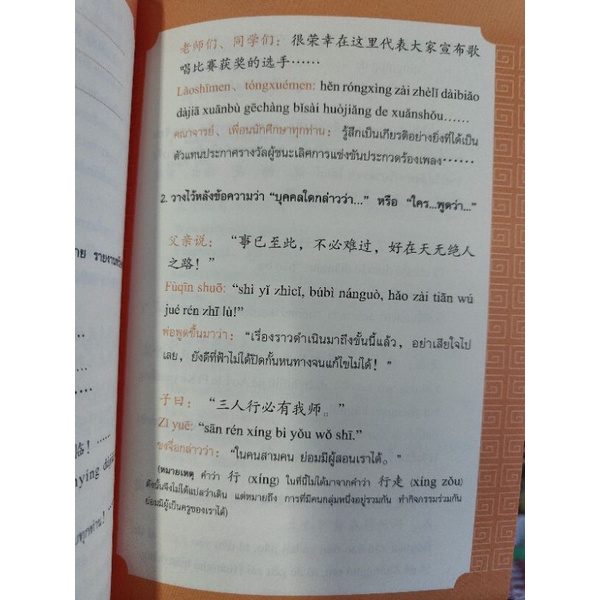 老师们、同学们：很荣幸在这里代表大家宣布歌
唱比赛获奖的选手……
Lǎoshīmen, tóngxuémen: hěn róngxìng zài zhèlǐ dàibiǎo
dàjiā xuānbù gēchàng bǐsài huòjiǎng de xuǎnshǒu……
คณาจารย์、เพื่อนนักศึกษาทุกท่าน: รู้สึกเป็นเกียรติอย่างยิ่งที่ได้เป็น
ตัวแทนประกาศรางวัลผู้ชนะเลิศการแข่งขันประกวดร้องเพลง……
2. วางไว้หลังข้อความว่า “บุคคลใดกล่าวว่า...” หรือ “ใคร...พูดว่า...”
父亲说：“事已至此，不必难过，好在天无绝人
之路！”
Fùqīn shuō: “shì yǐ zhìcǐ, búbì nánguò, hǎo zài tiān wú
jué rén zhī lù!”
พ่อพูดขึ้นมาว่า: “เรื่องราวดำเนินมาถึงขั้นนี้แล้ว, อย่าเสียใจไป
เลย, ยังดีที่ฟ้าไม่ได้ปิดกั้นหนทางจนแก้ไขไม่ได้！”
子曰：“三人行必有我师。”
Zǐ yuē: “sān rén xíng bì yǒu wǒ shī.”
ขงจื่อกล่าวว่า: “ในคนสามคน ย่อมมีผู้สอนเราได้。”
(หมายเหตุ คำว่า 行 (xíng) ในที่นี้ไม่ได้มาจากคำว่า 行走 (xíng zǒu)
ดังนั้นจึงไม่ได้แปลว่าเดิน แต่หมายถึง การที่มีคนกลุ่มหนึ่งอยู่รวมกัน ทำกิจกรรมร่วมกัน
ย่อมมีผู้เป็นครูของเราได้)